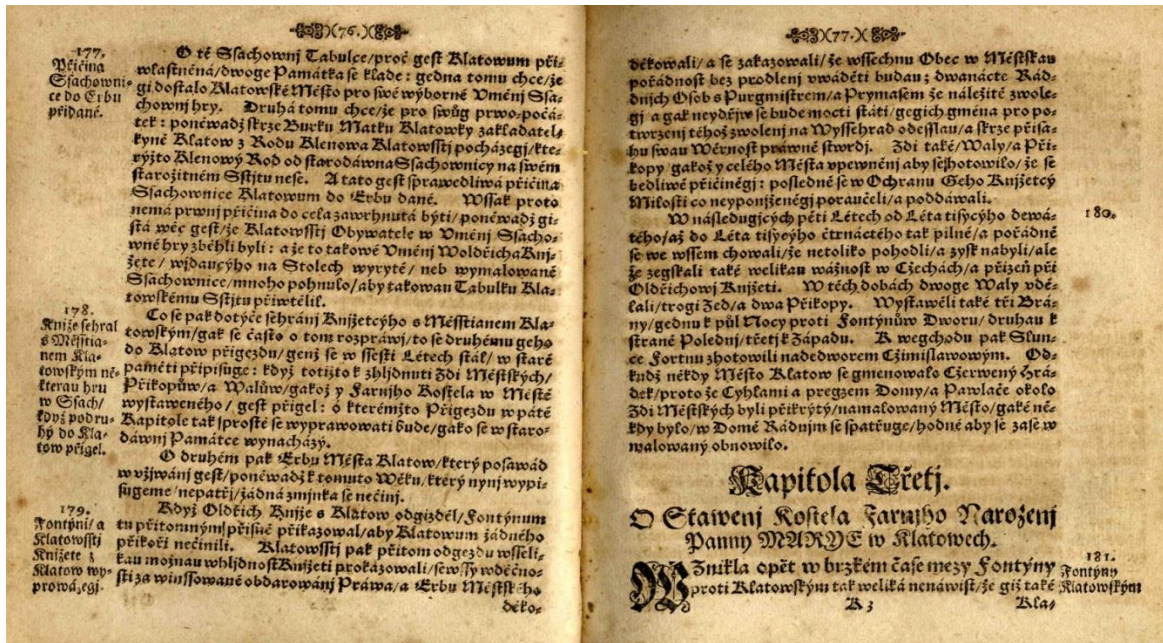 )(76.)(
177.
Přičina
Ssachowni-
ce do Erbu
přidané.
O té Ssachownj Tabulce/proč gest Klatowum při-
wlastněná/dwoge Památka se klade: gedna tomu chce/že
gi dostalo Klatowské Město pro swé wýborné Vměnj Ssa-
chownj hry. Druhá tomu chce/že pro swůg prwo-počá-
tek: poněwadž skrze Burku Matku Klatowky zakladatel-
kyně Klatow z Rodu Klenowa Klatowsstj pocházegj/kte-
rýžto Klenowý Rod od starodáwna Ssachownicy na swém
starožitném Sstjtu nese. A tato gest sprawedliwá přičina
Ssachownice Klatowum do Erbu dané. Wssak proto
nemá prwnj přičina do cela zawrhnutá býti/ poněwadž gi-
stá wěc gest/že Klatowsstj Obywatele w Vměnj Ssacho-
wné hry zběhlj byli: a že to takowé Vměnj Woldřicha Kni-
žete/ wjdaucýho na Stolech wyryté/ neb wymalowané
Ssachownice/mnoho pohnulo/aby takowau Tabulku Kla-
towskému Sstjtu přiwtělil.
178.
Kniže sehral
s Měsstia-
nem Kla-
towským ně-
kterau hru
w Ssach/
když podru-
hý do Kla-
tow přigel.
Co se pak dotýče sehránj Knjžetcýho s Měsstianem Kla-
towským/gak se často o tom rozpráwj/to se druhému geho
do Klatow přigezdu/genž se w ssesti Létech stal/ w staré
paměti připisuge: když totižto k zhljdnutj Zdi Městských/
Přikopůw/a Walůw/gakož y Farnjho Kostela w Městě
wystaweného/ gest přigel: o kterémžto Přigezdu w páté
Kapitole tak sprostě se wyprawowati bude/gako se w staro-
dáwnj Památce wynacházý.
O druhém pak Erbu Města Klatow/který posawád
w vžjwánj gest/poněwadž k tomuto Wěku/který nynj wypi-
sugeme nepatřj/žádná zmjnka se nečinj.
179.
Fontýni/ a
Klatowsstj
Knižete z
Klatow wy-
prowázegj.
Když Oldřich Knjže s Klatow odgižděl/Fontýnum
tu přitomným přisně přikazowal/aby Klatowum žádného
přikořj nečinili. Klatowsstj pak přitom odgezdu wsseli-
kau možnau vhljdnost Knižeti prokázowali/se wssy wděčno-
stj za winssowané obdarowánj Práwa/a Erbu Městského
děko-
)(77.)(
děkowali/ a se zakazowali/že wssechnu Obec w Městskau
pořádnost bez prodlenj vwáděti budau: z dwanácte Rád-
dnjch Osob s Purgmistrem/a Prymasem že náležitě zwole-
gj a gak neydřjw se bude mocti státi/gegich gména pro po-
twrzenj téhož zwolenj na Wyssehrad odesslau/a skrze přisa-
hu swau Wěrnost práwně stwrdj. Zdi také/Waly/a Při-
kopy/gakož y celého Města vpewněnj aby se zhotowilo/že se
bedliwě přičinëgj: posledně se w Ochranu Geho Knjžetcý
Milosti co neyponjženěgj porauceli/a poddáwali.
180.
W následugjcých pěti Létech od Léta tisýcýho dewá-
tého/až do Léta tisýcýho čtrnáctého tak pilně/a pořádně
se we wssem chowali/že netoliko pohodlj/a zysk nabyli/ale
že zegskali také welikau wážnost w Czechách/a přizeň při
Oldřichowj Knjžeti. W těch dobách dwoge Waly vdě-
lali/trogj Zed/a dwa Přikopy. Wystawěli také tři Brá-
ny/gednu k půl Nocy proti Fontýnůw Dworu/druhau k
straně Polednj/třetj k Západu. K wegchodu pak Slun-
ce Fortnu zhotowili nade dworem Czimislawowým. Od-
kudž někdy Město Klatow se gmenowalo Czerwený Hrá-
dek/proto že Cyhlami a pregzem Domy/a Pawlače okolo
Zdi Městských byli přikrytý/namalowaný Město/gaké ně-
kdy bylo/w Domě Rádnjm se spatřuge/hodné aby se zase w
walowaný obnowilo.
Kapitola Třetj.
O Stawenj Kostela Farnjho Narozenj
Panny MARYE w Klatowech.
181.
Fontýny
Klatowským
WZnikla opět w brzkém čase mezy Fontýny
proti Klatowským tak weliká nenáwist/že giž také
K 3
Kla-